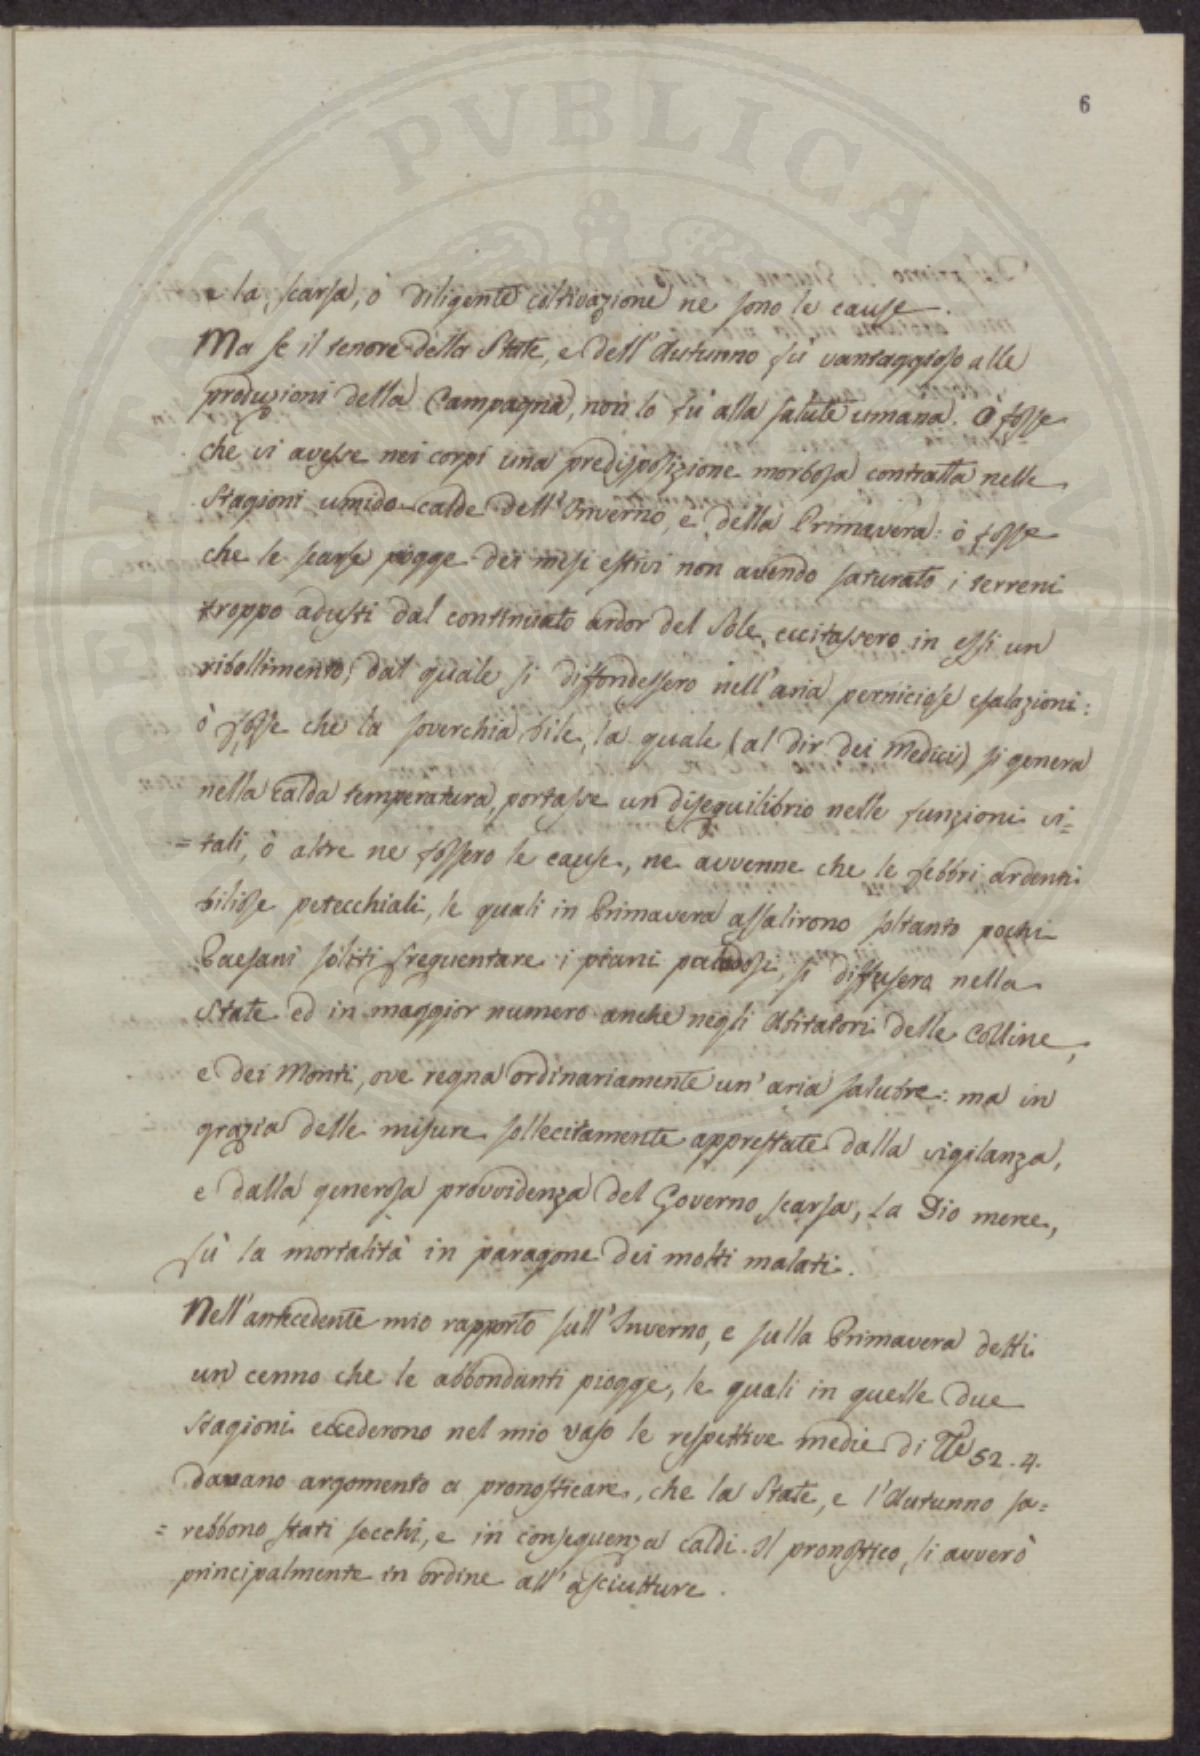 6
e la scarsa, ò diligente coltivazione ne sono le cause.
Ma se il tenore della State, e dell'Autunno fù vantaggioso alle
produzioni della Campagna, non lo fù alla salute umana. O fosse
che vi avesse nei corpi una predisposizione morbosa contratta nelle
Stagioni umido-calde dell'Inverno, e della Primavera: ò fosse
che le scarse piogge dei mesi estivi non avendo saturato i terreni
troppo adusti dal continuato ardor del Sole, eccitassero in essi un
ribollimento, dal quale si diffondessero nell'aria perniciose esalazioni:
ò fosse che la soverchia bile, la quale (al dir dei Medici) si genera
nella calda temperatura, portasse un disequilibrio nelle funzioni vi=
=tali, ò altre ne fossero le cause, ne avvenne che le febbri ardenti
biliose petecchiali, le quali in Primavera assalirono soltanto pochi
Paesani soliti frequentare i piani paludosi, si diffusero nella
State ed in maggior numero anche negli Abitatori delle Colline,
e dei Monti, ove regna ordinariamente un'aria salubre: ma in
grazia delle misure sollecitamente apprestate dalla vigilanza,
e dalla generosa provvidenza del Governo scarsa, la Dio mercè,
fù la mortalità in paragone dei molti malati.
Nell'antecedente mio rapporto sull'Inverno, e sulla Primavera detti
un cenno che le abbondanti piogge, le quali in quelle due
Stagioni eccederono nel mio vaso le respettive medie di 52.4.
davano argomento a pronosticare, che la State, e l'Autunno sa=
=rebbono stati secchi, e in conseguenza caldi. Il pronostico si avverò
principalmente in ordine all'asciutture.
PVBLICAE